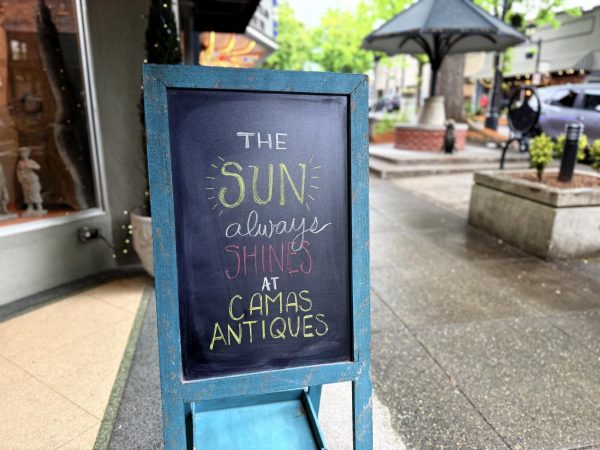 THE
SUN
always
SHINES
AT
CAMAS
ANTIQUES